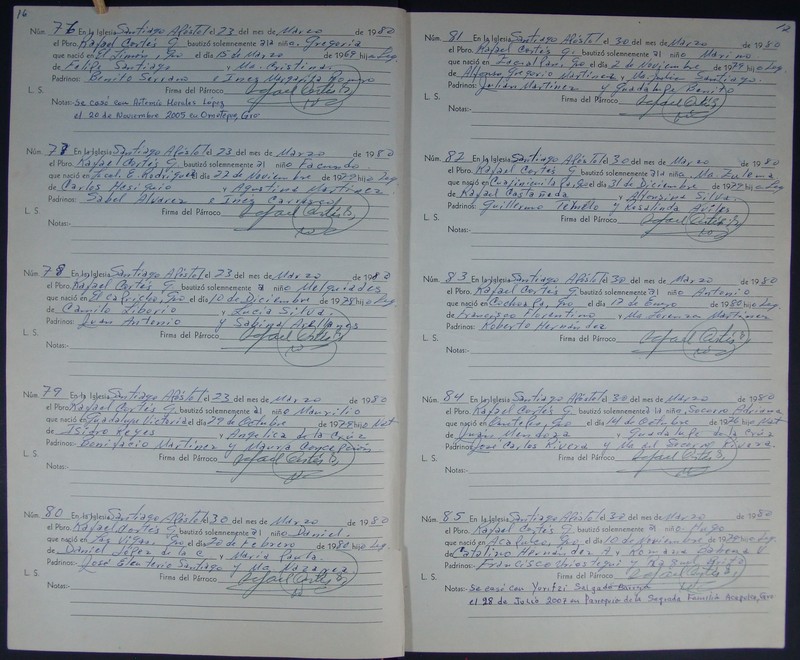 16
Núm. 76 En la Iglesia Santiago Apóstol el 23 del mes de Marzo de 1980
el Pbro. Rafael Cortés G. bautizó solemnemente a la niña. Gregoria
que nació en El Limón, Gro el día 15 de Marzo de 1969 hija Leg.
de Felipe Santiago y Ma. Cristina
Padrinos: Benito Serrano e Inez Margarita Romero
L. S. Firma del Párroco Rafael Cortés G.
Notas: Se casó con Artemio Morales López
el 20 de Noviembre 2005 en Ometepec, Gro
Núm. 77 En la Iglesia Santiago Apóstol el 23 del mes de Marzo de 1980
el Pbro. Rafael Cortés G. bautizó solemnemente al niño Facundo
que nació en Zcal. E. Rodríguez el día 27 de Noviembre de 1979 hijo Leg
de Carlos Hesiquio y Agustina Martínez
Padrinos: Isabel Álvarez e Inez
L. S. Firma del Párroco Rafael Cortés G.
Notas:
Núm. 78 En la Iglesia Santiago Apóstol el 23 del mes de Marzo de 1980
el Pbro. Rafael Cortés G. bautizó solemnemente al niño Melquiades
que nació en El Capricho, Gro el día 10 de Diciembre de 1978 hijo Leg.
de Camilo Liborio y Lucía Silva.
Padrinos: Juan Antonio y Sabina Arellanes
L. S. Firma del Párroco Rafael Cortés G.
Notas:
Núm. 79 En la Iglesia Santiago Apóstol el 23 del mes de Marzo de 1980
el Pbro. Rafael Cortés G. bautizó solemnemente al niño Maurilio
que nació en Guadalupe Victoria el día 29 de Octubre de 1979 hijo Nat
de Isidro Reyes y Angelica de la Cruz
Padrinos: Bonifacio Martínez y Maura Concepción
L. S. Firma del Párroco Rafael Cortés G.
Notas:
Núm. 80 En la Iglesia Santiago Apóstol el 30 del mes de Marzo de 1980
el Pbro. Rafael Cortés G. bautizó solemnemente al niño Daniel.
que nació en Gro. el día 20 de Febrero de 1980 hijo Leg.
de Daniel López de la C. y María Paula.
Padrinos: José Eleuterio Santiago y Ma. Nazarea
L. S. Firma del Párroco Rafael Cortés G.
Notas:
Núm. 81 En la Iglesia Santiago Apóstol el 30 del mes de Marzo de 1980
el Pbro. Rafael Cortés G. bautizó solemnemente al niño Marino
que nació en Gro el día 2 de Noviembre de 1979 hijo Leg.
de Alfonso Gregorio Martínez y Ma. Julia Santiago.
Padrinos: Julián Martínez y Guadalupe Benito
L. S. Firma del Párroco Rafael Cortés G.
Notas:
Núm. 82 En la Iglesia Santiago Apóstol el 30 del mes de Marzo de 1980
el Pbro. Rafael Cortés G. bautizó solemnemente a la niña Ma. Zulema
que nació en Cuajinicuilapa, Gro el día 31 de Diciembre de 1979 hija Leg
de Rafael Castañeda y Alfonsina Silva.
Padrinos: Guillermo y Rosalinda Aviles
L. S. Firma del Párroco Rafael Cortés G.
Notas:
Núm. 83 En la Iglesia Santiago Apóstol el 30 del mes de Marzo de 1980
el Pbro. Rafael Cortés G. bautizó solemnemente al niño Antonio
que nació en Cochoapa, Gro el día 17 de Enero de 1980 hijo Leg.
de Francisco Florentino y Ma Lorenza Martínez
Padrinos: Roberto Hernández
L. S. Firma del Párroco Rafael Cortés G.
Notas:
Núm. 84 En la Iglesia Santiago Apóstol el 30 del mes de Marzo de 1980
el Pbro. Rafael Cortés G. bautizó solemnemente a la niña, Socorro Adriana
que nació en Ometepec, Gro el día 14 de Octubre de 1976 hija Nat
de Juan Mendoza y Guadalupe de la Cruz
Padrinos: José Carlos Rivera y Ma. del Socorro Rivera.
L. S. Firma del Párroco Rafael Cortés G.
Notas:
Núm. 85 En la Iglesia Santiago Apóstol el 30 del mes de Marzo de 1980
el Pbro. Rafael Cortés G. bautizó solemnemente al niño Hugo
que nació en Acapulco, Gro el día 10 de Noviembre de 1979 hijo Leg.
de Catalino Hernández A. y Romana V.
Padrinos: Francisco y
L. S. Firma del Párroco Rafael Cortés G.
Notas: Se casó con Yuritzi Salgado
el 28 de Julio 2007 en Parroquia de la Sagrada Familia Acapulco, Gro